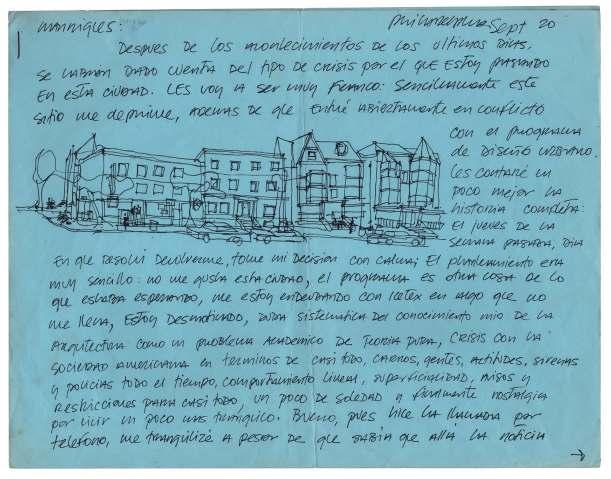 Philadelphia Sept 20
DESPUES DE LOS ACONTECIMIENTOS DE LOS ULTIMOS DIAS,
SE HABRÁN DADO CUENTA DEL TIPO DE CRISIS POR EL QUE ESTOY PASANDO
EN ESTA CIUDAD. LES VOY A SER MUY FRANCO: SENCILLAMENTE ESTE
SITIO ME DEPRIME, ADEMAS DE QUE ENTRÉ ABIERTAMENTE EN CONFLICTO
CON EL PROGRAMA
DE DISEÑO URBANO.
LES CONTARÉ UN
POCO MEJOR LA
HISTORIA COMPLETA:
EL JUEVES DE LA
SEMANA PASADA, DIA
EN QUE RESOLVI DEVOLVERME, TOME MI DECISION CON CALMA; EL PLANTEAMIENTO ERA
MUY SENCILLO: NO ME GUSTA ESTA CIUDAD, EL PROGRAMA ES OTRA COSA DE LO
QUE ESTABA ESPERANDO, ME ESTOY ENDEUDANDO CON ICETEX EN ALGO QUE NO
ME LLENA, ESTOY DESMOTIVADO, DUDA SISTEMATICA DEL CONOCIMIENTO MIO DE LA
ARQUITECTURA COMO UN PROBLEMA ACADEMICO DE TEORIA PURA, CRISIS CON LA
SOCIEDAD AMERICANA EN TERMINOS DE CASI TODO, CARROS, GENTES, ACTITUDES, SIRENAS
Y POLICIAS TODO EL TIEMPO, COMPORTAMIENTO LINEAL, SUPERFICIALIDAD, AVISOS Y
RESTRICCIONES PARA CASI TODO, UN POCO DE SOLEDAD Y FINALMENTE NOSTALGIA
POR VIVIR UN POCO MAS TRANQUILO. BUENO, PUES HICE LA LLAMADA POR
TELEFONO, ME TRANQUILIZÉ A PESAR DE QUE SABIA QUE ALLÁ LA NOTICIA
→